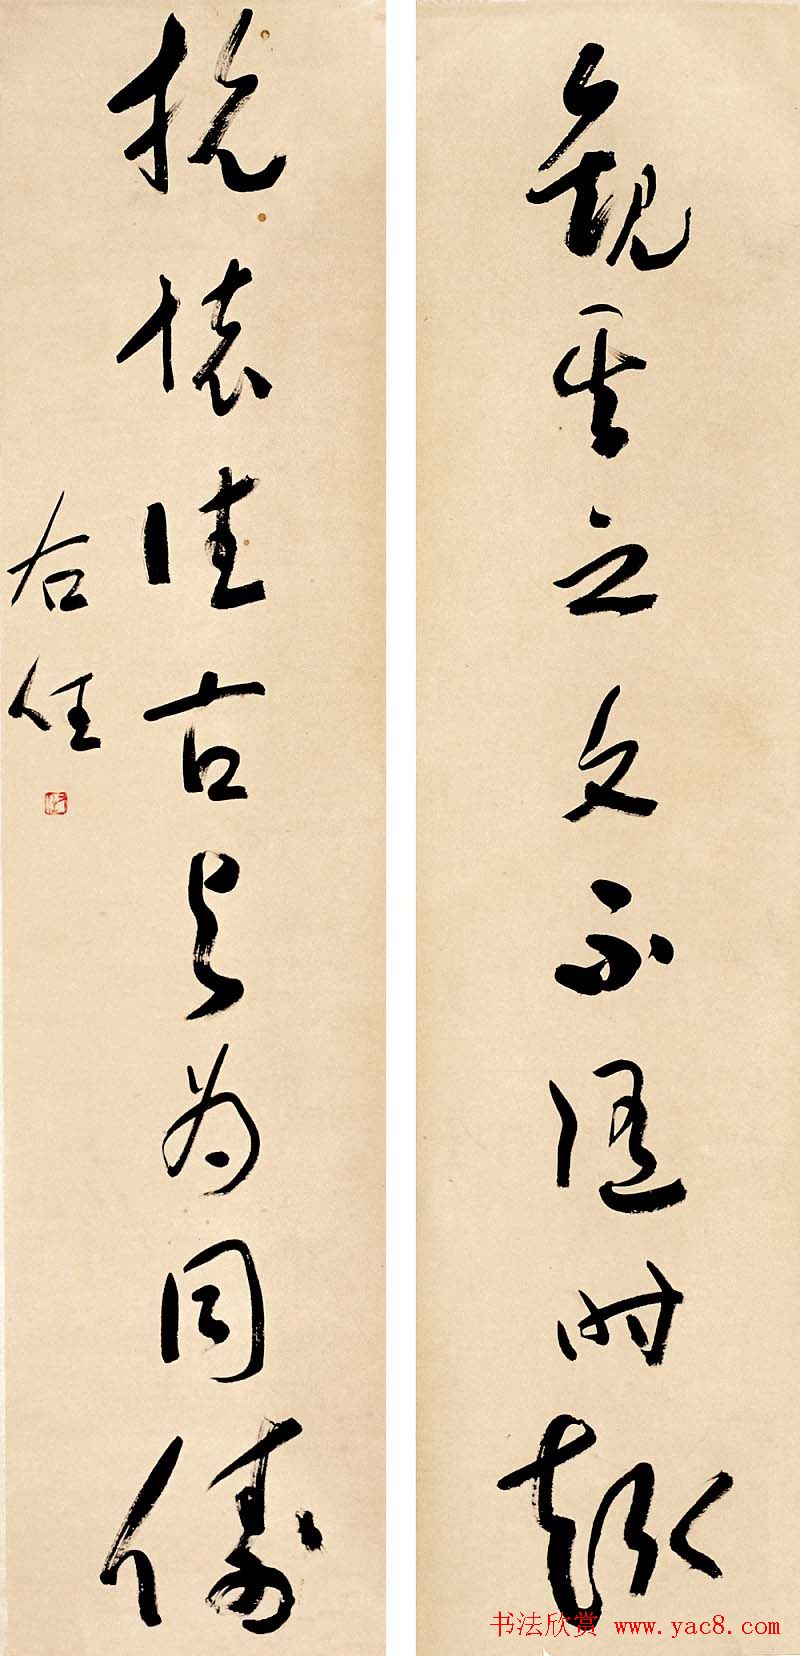 觀其立文不隨時趨
抗懷往古與為同儔
右任
书法欣赏 www.yac8.com